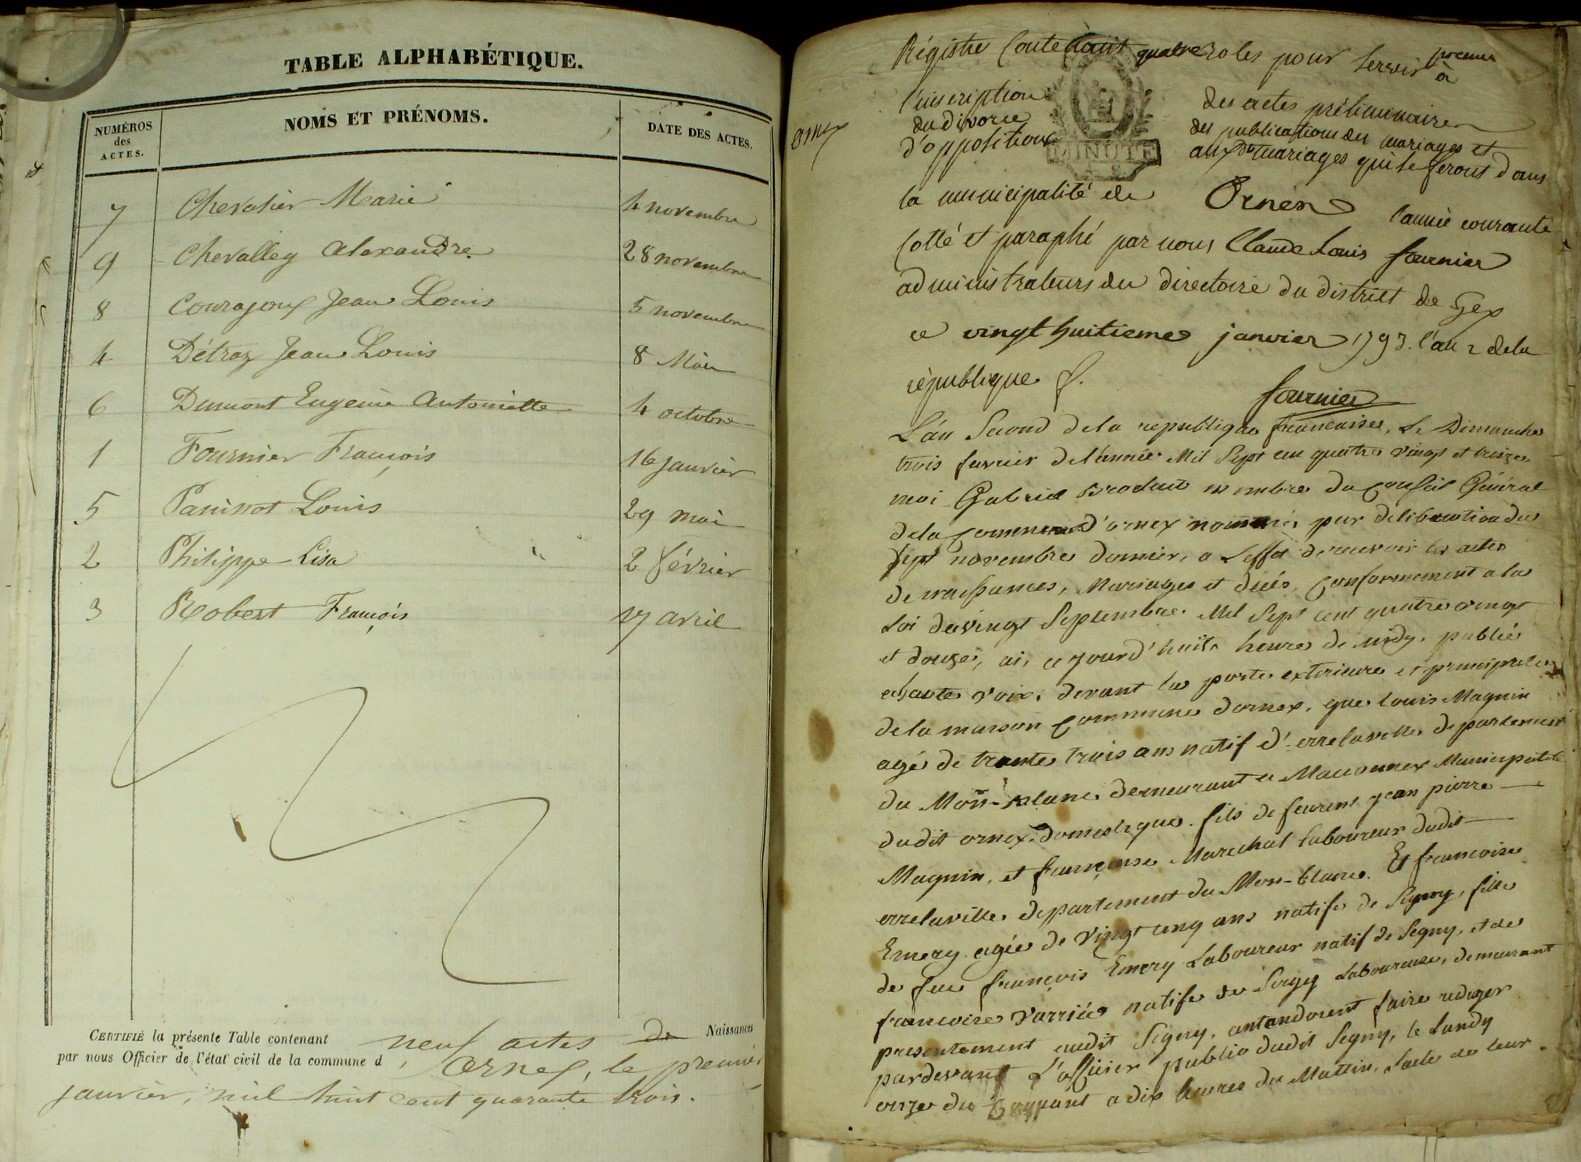 TABLE ALPHABÉTIQUE.
NUMÉROS des ACTES.
NOMS ET PRÉNOMS.
DATE DES ACTES.
7 Chevalier Marie 4 novembre
9 Chevalley Alexandre 28 novembre
8 Courajoux Jean Louis 5 novembre
4 Détraz Jean Louis 8 Mai
6 Dumont Eugénie Antoinette 4 octobre
1 Fournier François 16 janvier
5 Panissot Louis 29 mai
2 Philippe Lisa 2 février
3 Robert François 17 avril
CERTIFIÉ la présente Table contenant neuf actes de Naissances
par nous Officier de l'état civil de la commune d Ornex, le premier
janvier, mil huit cent quarante trois.
Régistre Contenant quatre roles pour servir à
premier
l'inscription des actes préliminaires
du divorce des publications des mariages et
d'oppositions aux mariages qui se feront dans
MINUTE
Ornex
la municipalité de Ornex l'année courante
Cotté et paraphé par nous Claude Louis fournier
administrateurs du directoire du district de Gex
ce vingt huitieme janvier 1793. l'an 2 de la
république
fournier
L'an Second de la republique francaise, Le Dimanche
trois fevrier de l'année Mil Sept cen quatre vingt et treize
moi Gabriel membre du Conseil Général
de la Commune d'ornex nommé par deliberation du
Sept novembre dernier, a L'effet de recevoir les actes
de naissances, Mariages et décés, Conformement a la
Loi du vingt Septembre Mil Sept cent quatre vingt
et douze, ai, ce jourd'hui a heure de midy, publié
a haute voix, devant la porte exterieure et principale
de la maison Commune dornex, que Louis Magnin
agé de trante trois ans natif d'errelaville departement
du Mon-blanc demeurant a Maconnex Municipalité
dudit ornex domestique fils de jean pierre
Magnin, et françoise Marechal Laboureur dudit
errelaville departement du Mon-blanc. Et francoise
Emery agée de vingt cinq ans natife de Segny, fille
de feu françois Emery Laboureur natif de Segny, et de
francoise natife de Sergy Laboureuse, demeurant
presentement audit Segny, antandoient faire rediger
pardevant L'officier public dudit Segny, le Lundy
onze du Courant a dix heures du Mattin, l'acte de leur